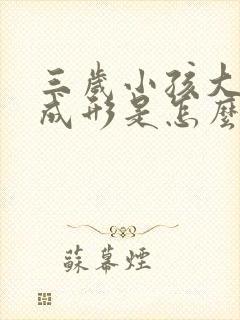 三歲小孩大
成形是怎麼
蘇幕煙